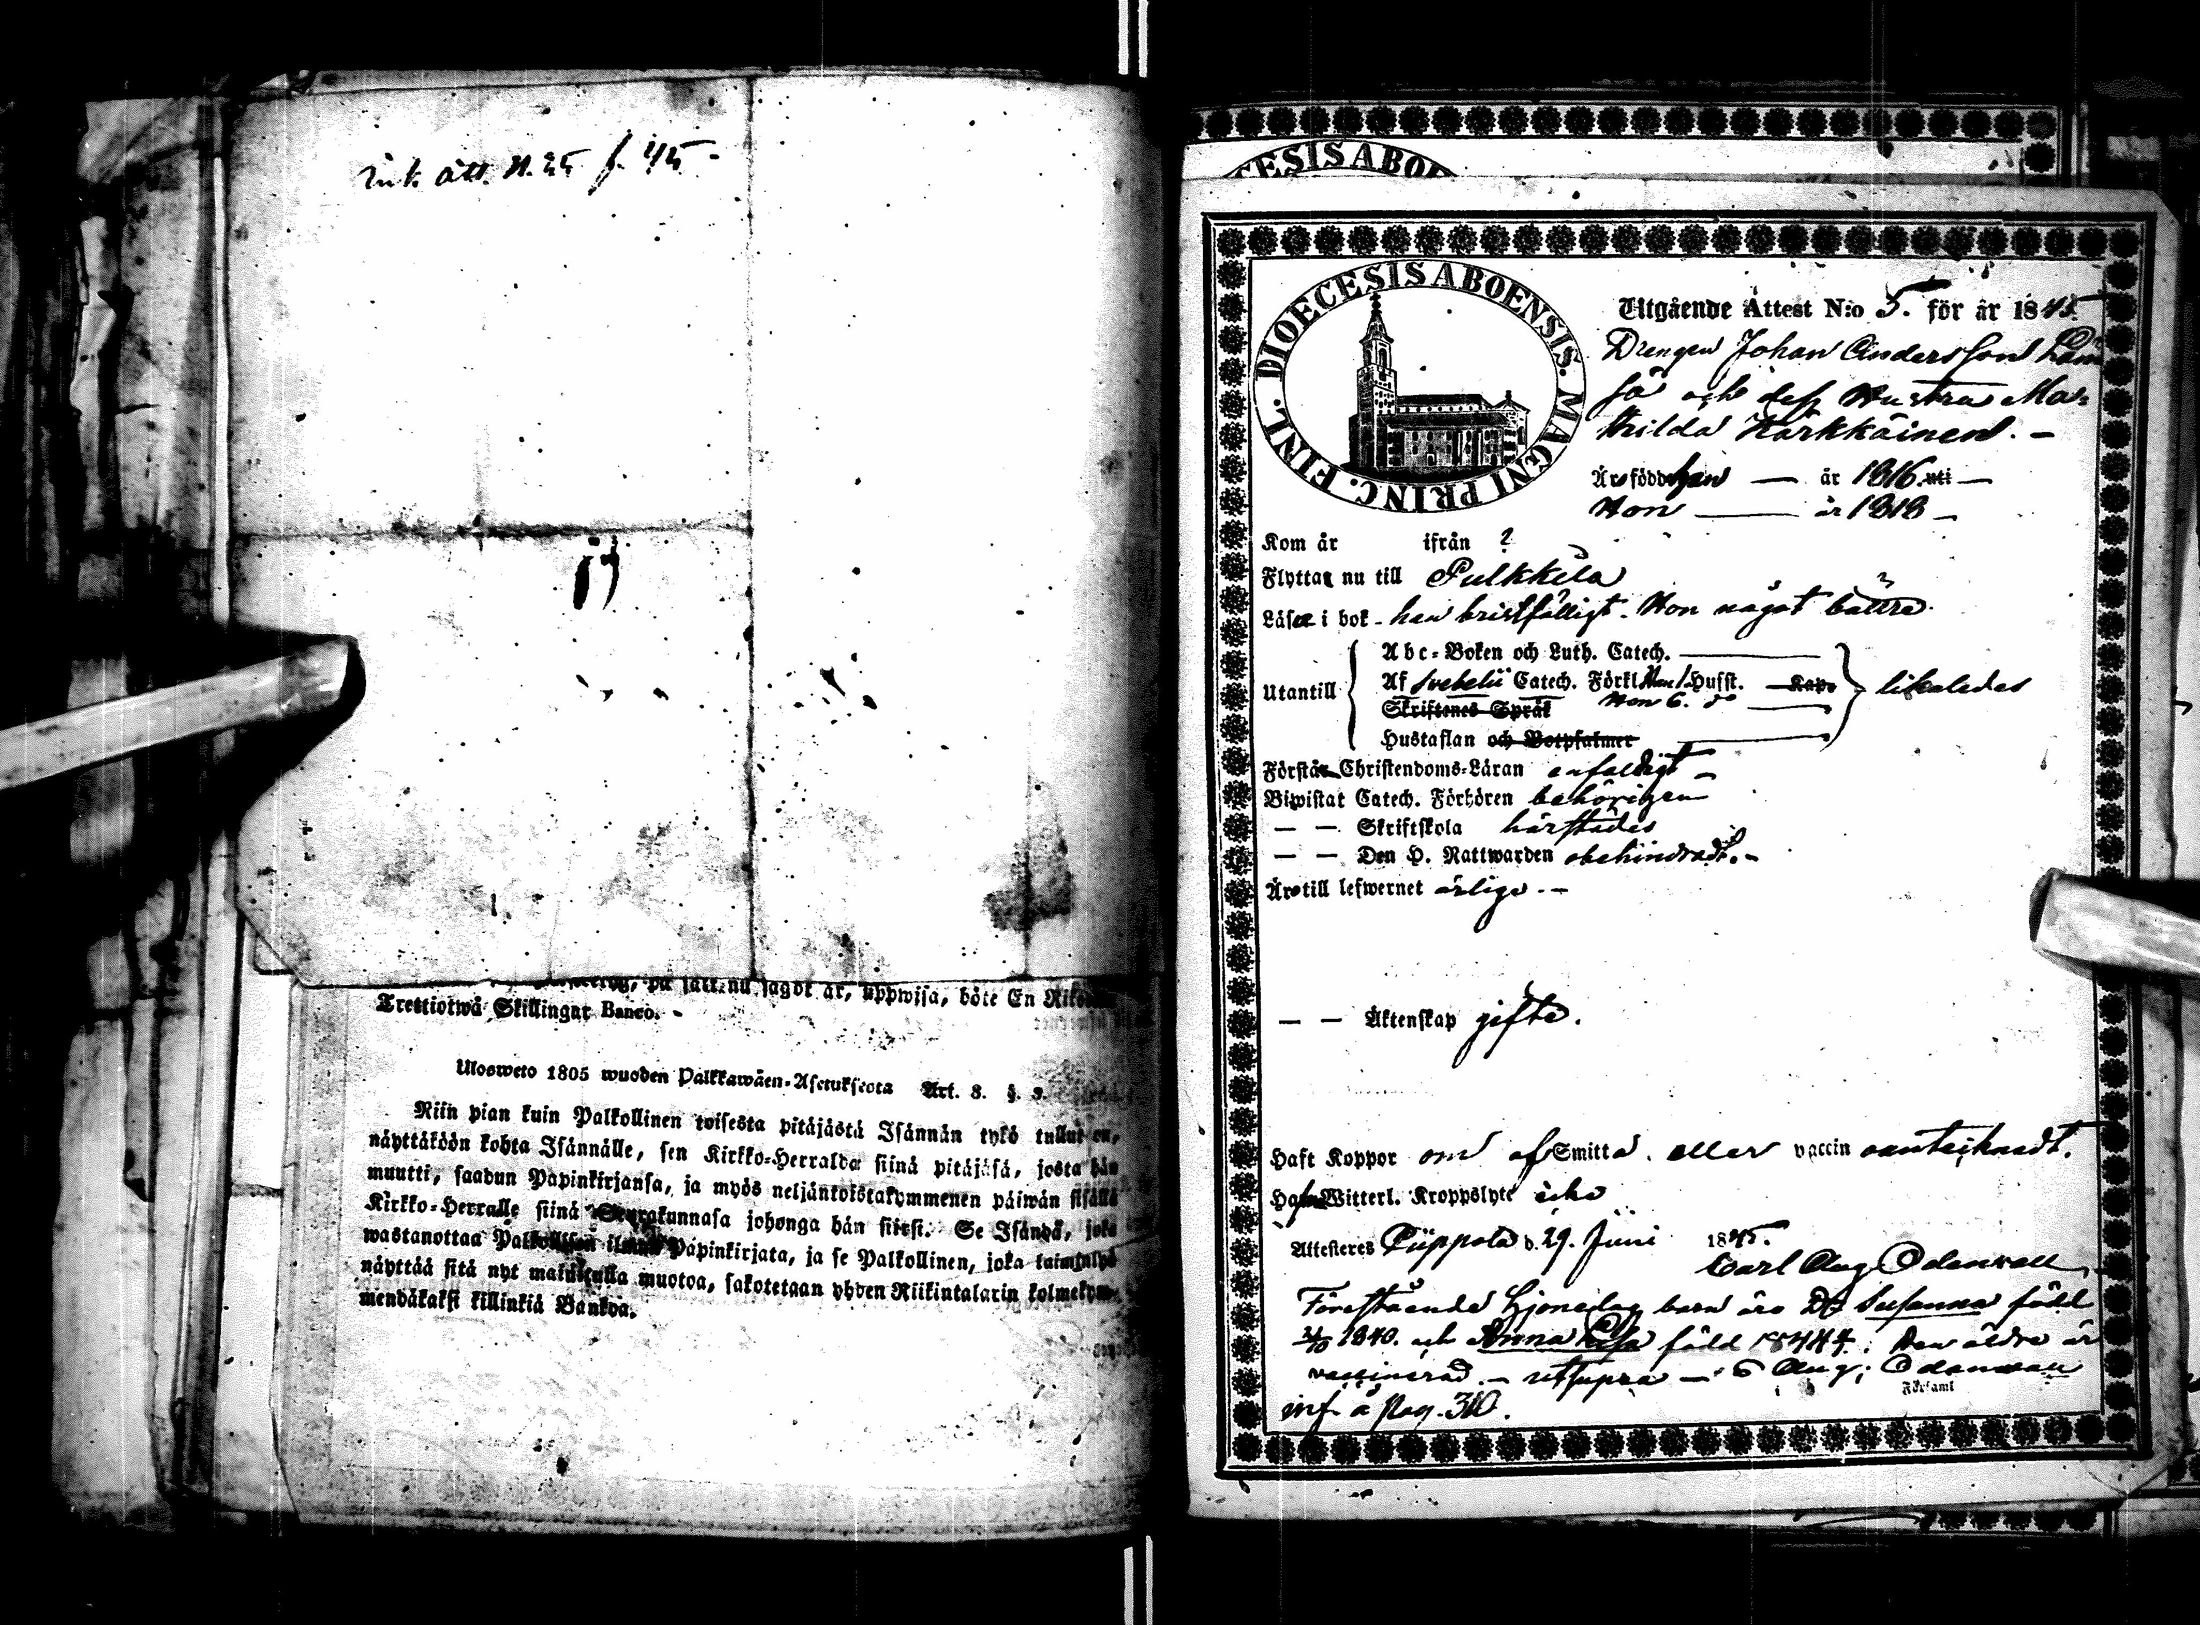 Ink. att. N. 25 f. 45 -
19
på sätt nu sagdt är, uppwisa, böte En
Trettiotwå Skillingar Banco. -
Ulosweto 1805 wuoden Palkkawäen-Asetuksesta Art. 8. §. 9.
Niin pian kuin Palkollinen toisesta pitäjästä Isännän tykö tullut on,
näyttäköön kohta Isännälle, sen Kirkko-Herralda siinä pitäjäsä, josta hän
muutti, saadun Papinkirjansa, ja myös neljäntoistakymmenen päiwän sisällä
Kirkko-Herralle siinä Seurakunnasa johonga hän siirsi. Se Isändä, joka
wastanottaa Palkollisen ilman Papinkirjata, ja se Palkollinen, joka laiminlyö
näyttää sitä nyt mainitulla muotoa, sakotetaan yhden Riikintalarin kolmekym-
mendäkaksi killinkiä Bankoa.
CESIS ABOEN
DIOECESIS ABOENSIS. MAGNI PRINC. FINL.
Utgående Attest N:o 5. för år 1845.
Drengen Johan Andersson Läm
sä och dess Hustru Ma-
thilda Kärkkäinen. -
Äro född han — år 1816 uti —
Hon — år 1818 —
Kom år ifrån ?
Flyttar nu till Pulkkila
Läsa i bok - han bristfälligt. Hon något bättre.
Utantill
Abc-Boken och Luth. Catech. —
Af Svebelii Catech. Förkl. Han 1. Husst. Kap.
Skriftenes Språk Hon 6. do —
Hustaflan och Botpsalmer —
likaledes
Förstår Christendoms-Läran enfaldigt —
Biwistat Catech. Förhören behörigen
— — Skriftskola härstädes
— — Den H. Nattwarden obehindradt. -
Äro till lefwernet ärliga. -
— — Äktenskap gifte.
Haft Koppor om af Smitta eller vaccin oantecknadt.
Hafwa Witterl. Kroppslyte icke
Attesteres Piippola d. 29. Juni 1845.
Carl Aug Odenwall
Förestående Hjonelag barn äro Susanna född
1840. och Anna Lisa född 1844; Den äldre är
vaccinerad. - utsupra - C Aug; Odenwall
Förssaml
inf. å Pag. 310.